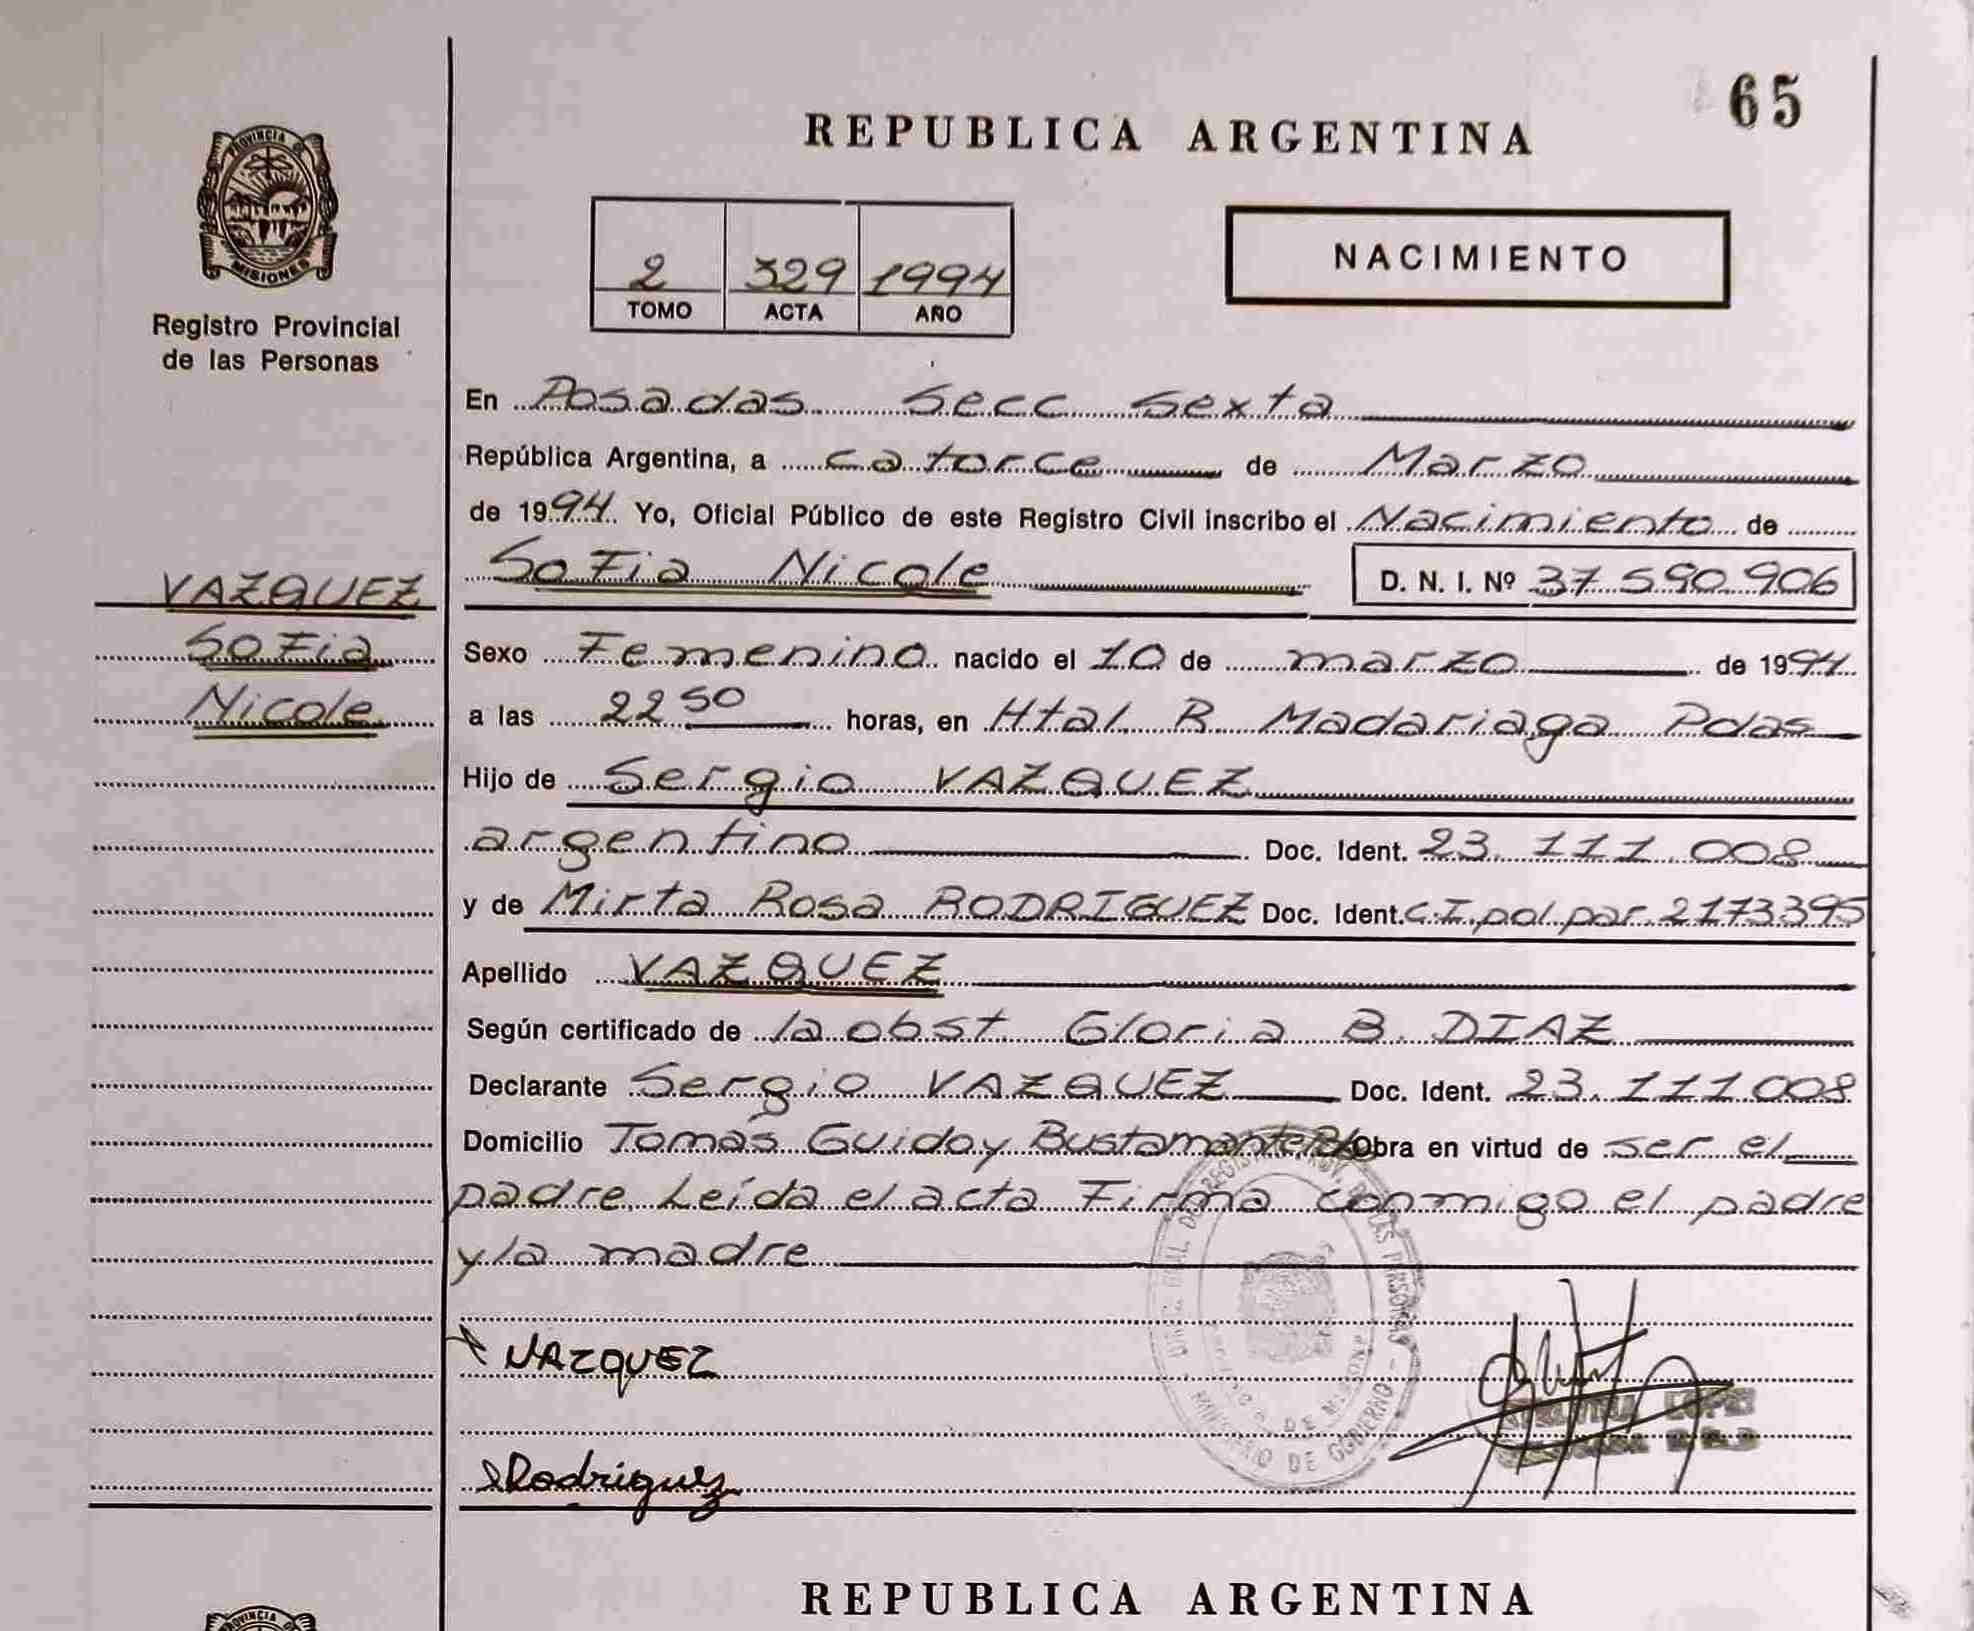 65
REPUBLICA ARGENTINA
PROVINCIA DE
MISIONES
Registro Provincial
de las Personas
2 329 1994
TOMO ACTA AÑO
NACIMIENTO
En Posadas Secc Sexta
República Argentina, a catorce de Marzo
de 1994. Yo, Oficial Público de este Registro Civil inscribo el Nacimiento de
Sofia Nicole D. N. I. Nº 37.590.906
VAZQUEZ
Sofia
Nicole
Sexo Femenino nacido el 10 de marzo de 1994
a las 22 50 horas, en Htal R Madariaga Pdas
Hijo de Sergio VAZQUEZ
argentino Doc. Ident. 23.111.008
y de Mirta Rosa RODRIGUEZ Doc. Ident. C.I. pol. par. 2173395
Apellido VAZQUEZ
Según certificado de la obst. Gloria B. DIAZ
Declarante Sergio VAZQUEZ Doc. Ident. 23.111.008
Domicilio Tomás Guido y Bustamante Obra en virtud de ser el
padre. Leída el acta Firma conmigo el padre
y la madre
VAZQUEZ
Rodriguez
MINISTERIO DE GOBIERNO
LOPEZ
REPUBLICA ARGENTINA
PROVINCIA